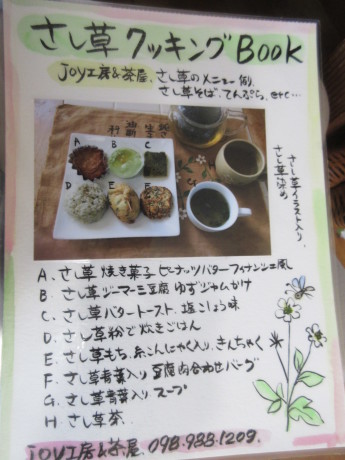 さし草クッキングBOOK
JOY工房&茶屋、さし草のメニュー例、
さし草そば、てんぷら、etc…
A B C
D E F
さし草イラスト入り、
さし草染め
A、さし草 焼き菓子 ピーナッツバターフィナンシェ風
B、さし草ジーマーミ豆腐 ゆずジャムかけ
C、さし草バタートースト、塩こしょう味
D、さし草粉で炊きごはん
E、さし草もち、糸こんにゃく入り、きんちゃく
F、さし草青葉入り豆腐肉合わせバーグ
G、さし草青葉入りスープ
H、さし草茶
JOY工房&茶屋、098-933-1209.